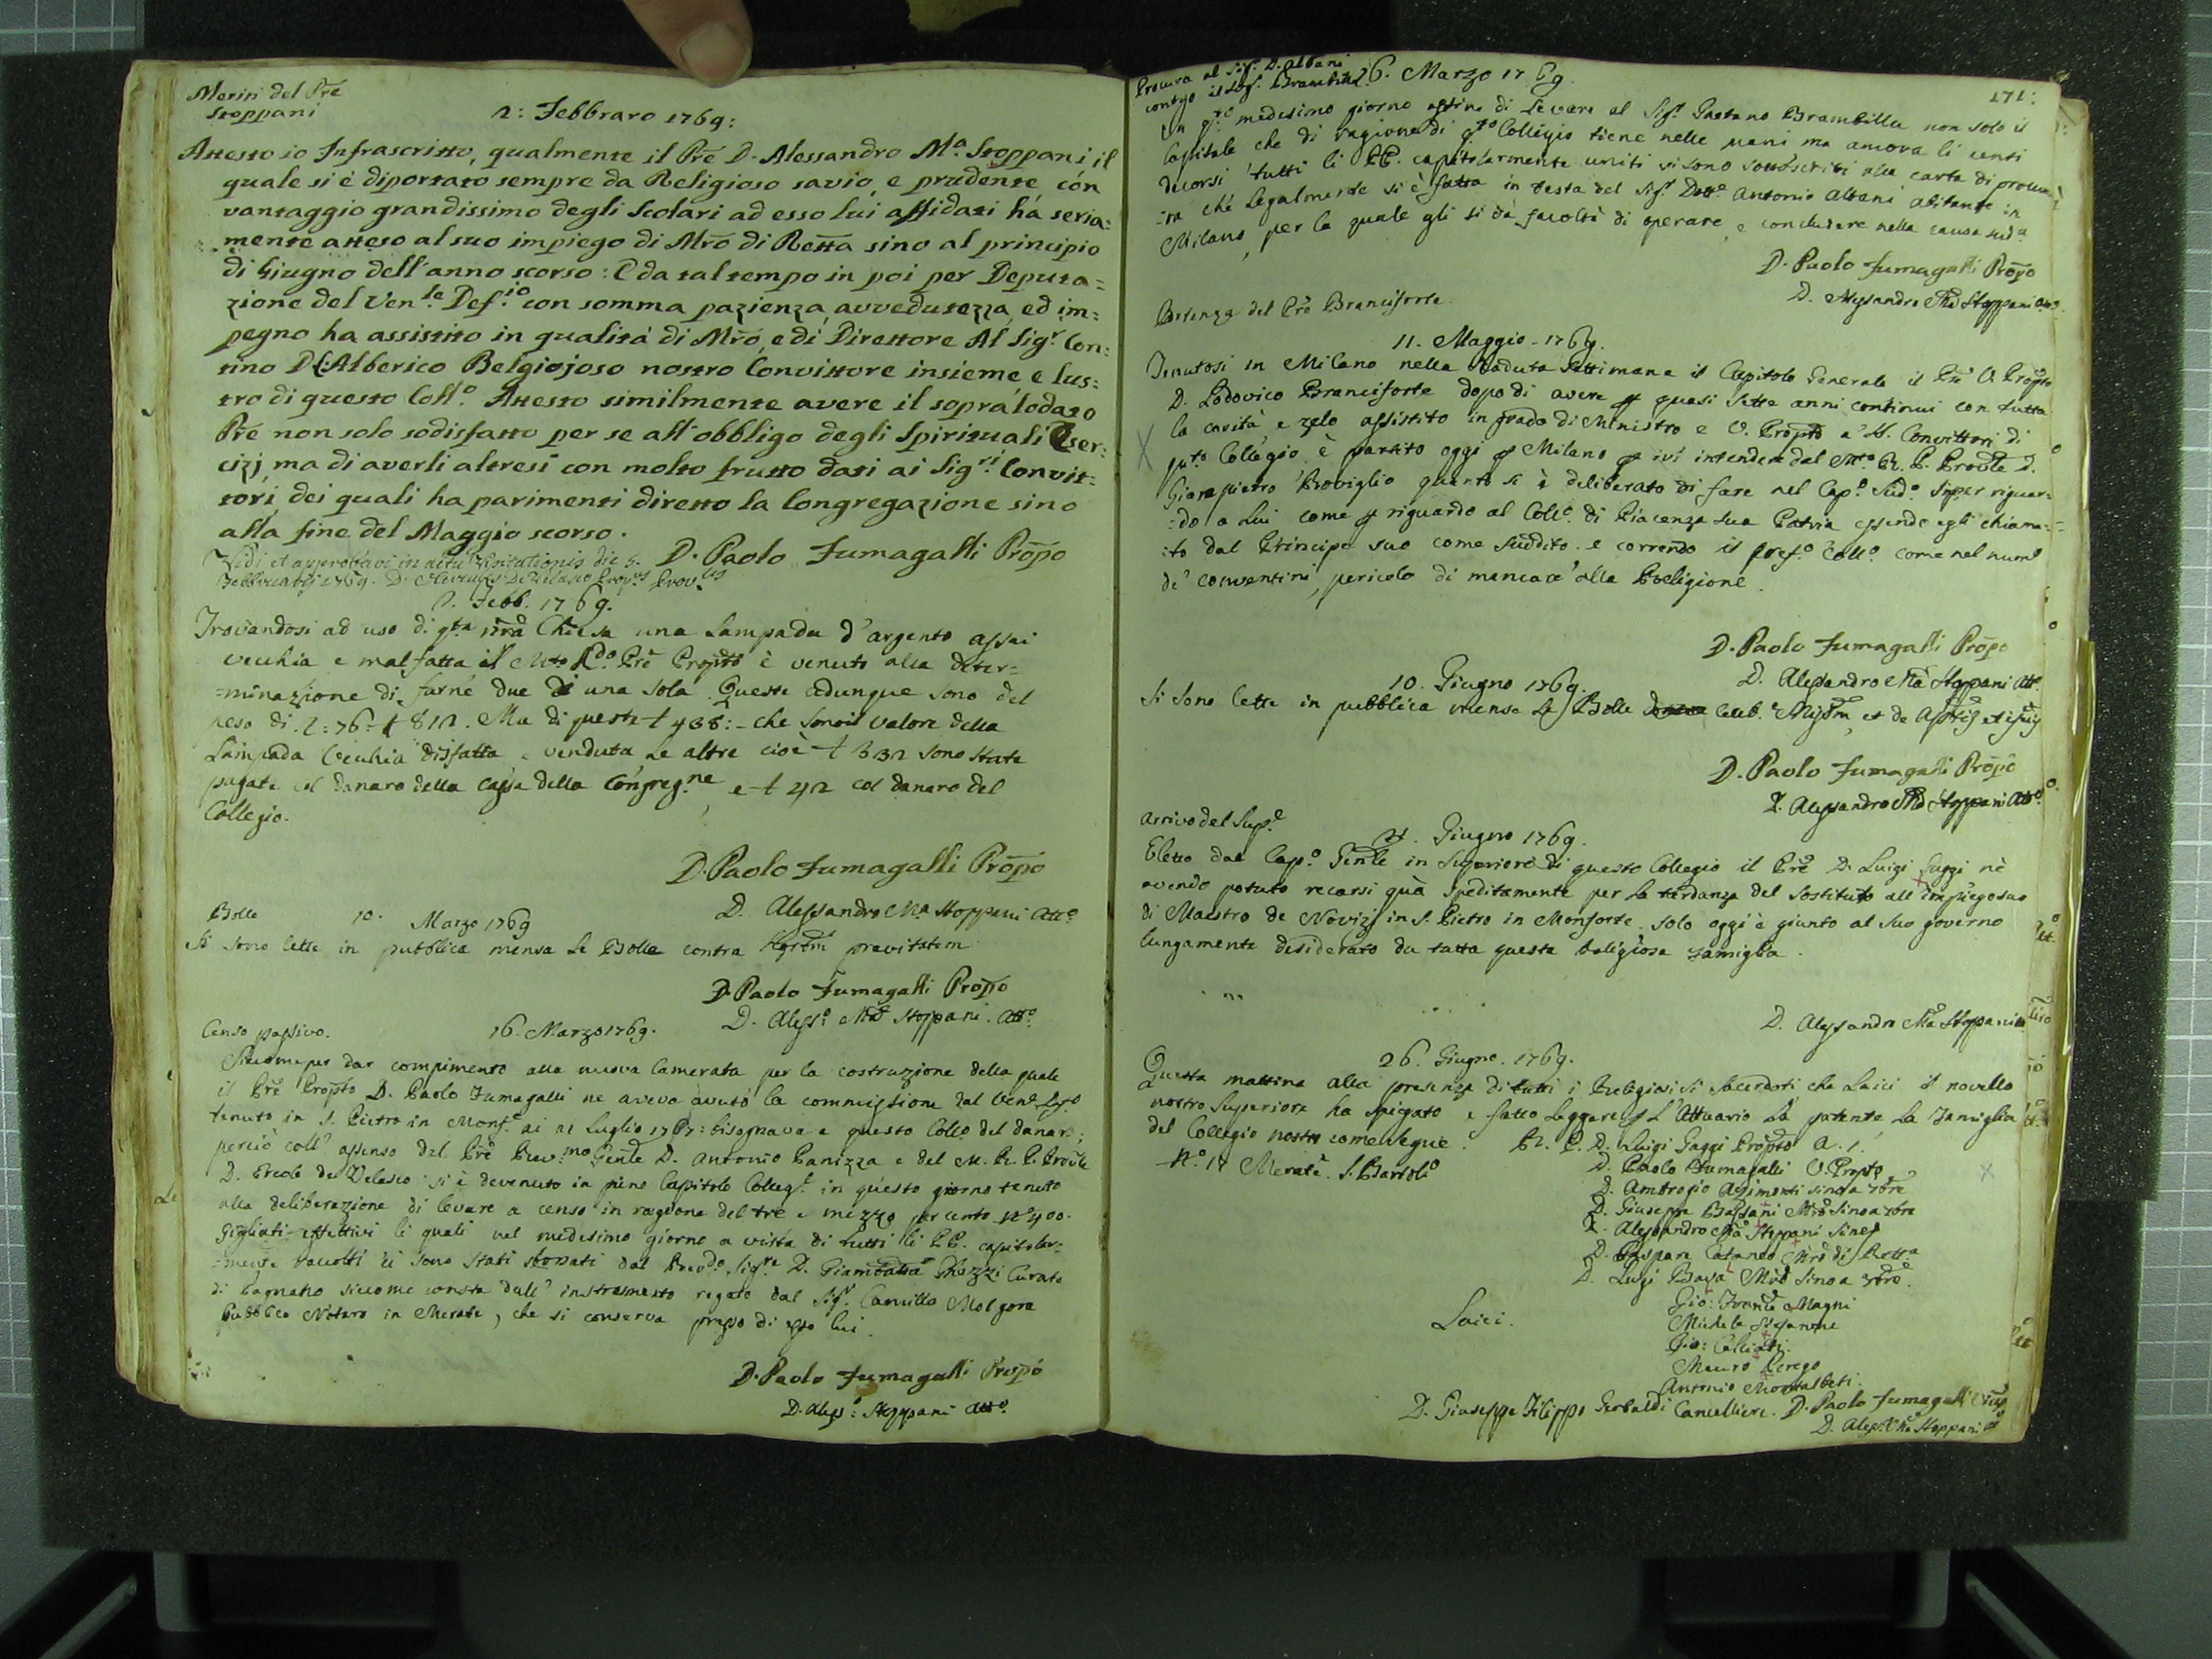 Meriti del Prē
Stoppani
2: Febbraro 1769:
Attesto io Infrascritto, qualmente il Prē D. Alessandro Mᵃ. Stoppani il
quale si è diportato sempre da Religioso savio, e prudente, con
vantaggio grandissimo degli Scolari ad esso lui affidati há seria=
mente atteso al suo impiego di Mrō di Retta sino al principio
di Giugno dell'anno scorso: E da tal tempo in poi per Deputa=
zione del Ven.ˡᵉ Def.ⁱᵒ con somma pazienza, avvedutezza, ed im=
pegno ha assistito in qualità di Mrō, e di Direttore Al Sigʳ. Con=
tino D. Alberico Belgiojoso nostro Convittore insieme, e lus=
tro di questo Collº. Attesto similmente avere il sopra lodato
Prē non solo sodisfatto per se all'obbligo degli Spirituali Eser=
cizj, ma di averli altresì con molto frutto dati ai Sigʳⁱ Convit=
tori, dei quali ha parimenti diretto la Congregazione sino
alla fine del Maggio scorso.
D. Paolo Fumagalli Propō
Vidi et approbavi in actu Visitationis die 5.
Febbruarij 1769. D.
Febb. 1769.
Trovandosi ad uso di qᵗᵃ nrā Chiesa una Lampada d'argento assai
vecchia e malfatta il Mᵗᵒ Rᵈᵒ. Prē Propto è venuto alla deter=
=minazione di farne due di una sola. Queste adunque sono del
peso di 76 812. Ma di queste 438:- che sono il valore della
Lampada Vecchia disfatta, e venduta, Le altre cioè 332 sono state
pagate col danaro della Cassa della Congreg.ⁿᵉ, e 42 col danaro del
Collegio.
D. Paolo Fumagalli Propō
D. Alessandro Mᵃ Stoppani Attº
Bolle
10. Marzo 1769
Si sono lette in pubblica mensa Le Bolle contra pravitatem
D. Paolo Fumagalli Propō
D. Alessº: Mᵃ Stoppani. Attº.
Censo passivo.
16. Marzo 1769.
Siccome per dar compimento alla nuova Camerata per la costruzione della quale
il Prē Propto D. Paolo Fumagalli ne aveva avuto la commissione dal Ven.
tenuto in S. Pietro in Monf. ai 21 Luglio 1767: bisognava a questo Collº. del danaro;
perciò coll' assenso del Prē Rev.ᵐᵒ Genle D. Antonio Panizza e del M. R. P. Provle
D. Ercole de Velasco si è devenuto in pieno Capitolo Colleg.ᵉ in questo giorno tenuto
alla deliberazione di levare a censo in ragione del tre e mezzo per cento Nº 400.
Gigliati effettivi li quali nel medesimo giorno a vista di tutti li PP. capitolar=
=mente raccolti ci sono stati sborsati dal Revdº. Sigʳᵉ D. Giambatta Ghezzi Curato
di Pagnano siccome consta dall' instromento rogato dal Sigʳ. Camillo Molgora
Pubblico Notaro in Merate, che si conserva presso di esso lui.
D. Paolo Fumagalli Propō
D. Alessº: Stoppani Attº.
171:
Procura al Sigʳ. D. Albani
contro il Sigʳ. Brambilla
26. Marzo 1769.
In qᵗᵒ medesimo giorno affine di Levare al Sigʳ. Gaetano Brambilla non solo il
Capitale che di ragione di qᵗᵒ Collegio tiene nelle mani ma ancora li censi
decorsi tutti li PP. capitolarmente uniti si sono sottoscritti alla carta di procu=
=ra che Legalmente si è fatta in testa del Sigʳ. Dottʳᵉ Antonio Albani abitante in
Milano, per la quale gli si dà facoltà di operare, e concludere nella causa sudᵃ
D. Paolo Fumagalli Propō
D. Alessandro Mᵃ Stoppani Attº.
Partenza del Prē Branciforte.
11. Maggio. 1769.
Tenutosi in Milano nella caduta Settimana il Capitolo Generale il Prē V. Propto
D. Lodovico Branciforte dopo di avere per quasi sette anni continui con tutta
la carità e zelo assistito in grado di Ministro e V. Propto a' SS. Convittori di
quᵗᵒ Collegio è partito oggi per Milano per ivi intendere dal Mᵗᵒ R. P. Provle D.
Giampietro Roviglio quanto si è deliberato di fare nel Capº. Sudº. sì per riguar=
=do a Lui come per riguardo al Collº. di Piacenza sua Patria essendo egli chiama=
=to dal Principe suo come suddito e correndo il prefº. Collº. come nel num
de' conventini, pericolo di mancare alla Religione.
D. Paolo Fumagalli Propō
D. Alessandro Mᵃ Stoppani Attº.
10. Giugno 1769.
Si sono lette in pubblica mensa Le Bolle
D. Paolo Fumagalli Propō
D. Alessandro Mᵃ Stoppani Attº.
Arrivo del Supᵉ
Giugno 1769.
Eletto dal Capº. Genle in Superiore di questo Collegio il Prē D. Luigi Gaggi nè
avendo potuto recarsi quà speditamente per la tardanza del sostituto all'impiego suo
di Maestro de Novizj in S. Pietro in Monforte, solo oggi è giunto al suo governo
lungamente desiderato da tutta questa Religiosa Famiglia.
D. Alessandro Mᵃ Stoppani
26. Giugno. 1769.
Questa mattina alla presenza di tutti i Religiosi sì Sacerdoti che Laici il novello
nostro Superiore ha spiegato e fatto Leggere per L'Attuario La patente, La Famiglia
del Collegio nostro come segue.
R. P. D. Luigi Gaggi Propto A. 1.
Nº. 18 Merate. S. Bartolº
D. Paolo Fumagalli V. Propto
D. Ambrogio Agimonti sino a
D. Giuseppe Bassani Mrō sino a
D. Alessandro Mᵃ Stoppani
D. Gaspare Cataneo Mrō di Retta
D. Luigi Mrō sino a
Laici.
Gio: Franco Magni
Michele Stefanone
Gio: Colliati
Mauro Perego
Antonio Montalbeti.
D. Giuseppe Filippo Gerbaldi Cancelliere.
D. Paolo Fumagalli
D. Aless. Mᵃ Stoppani